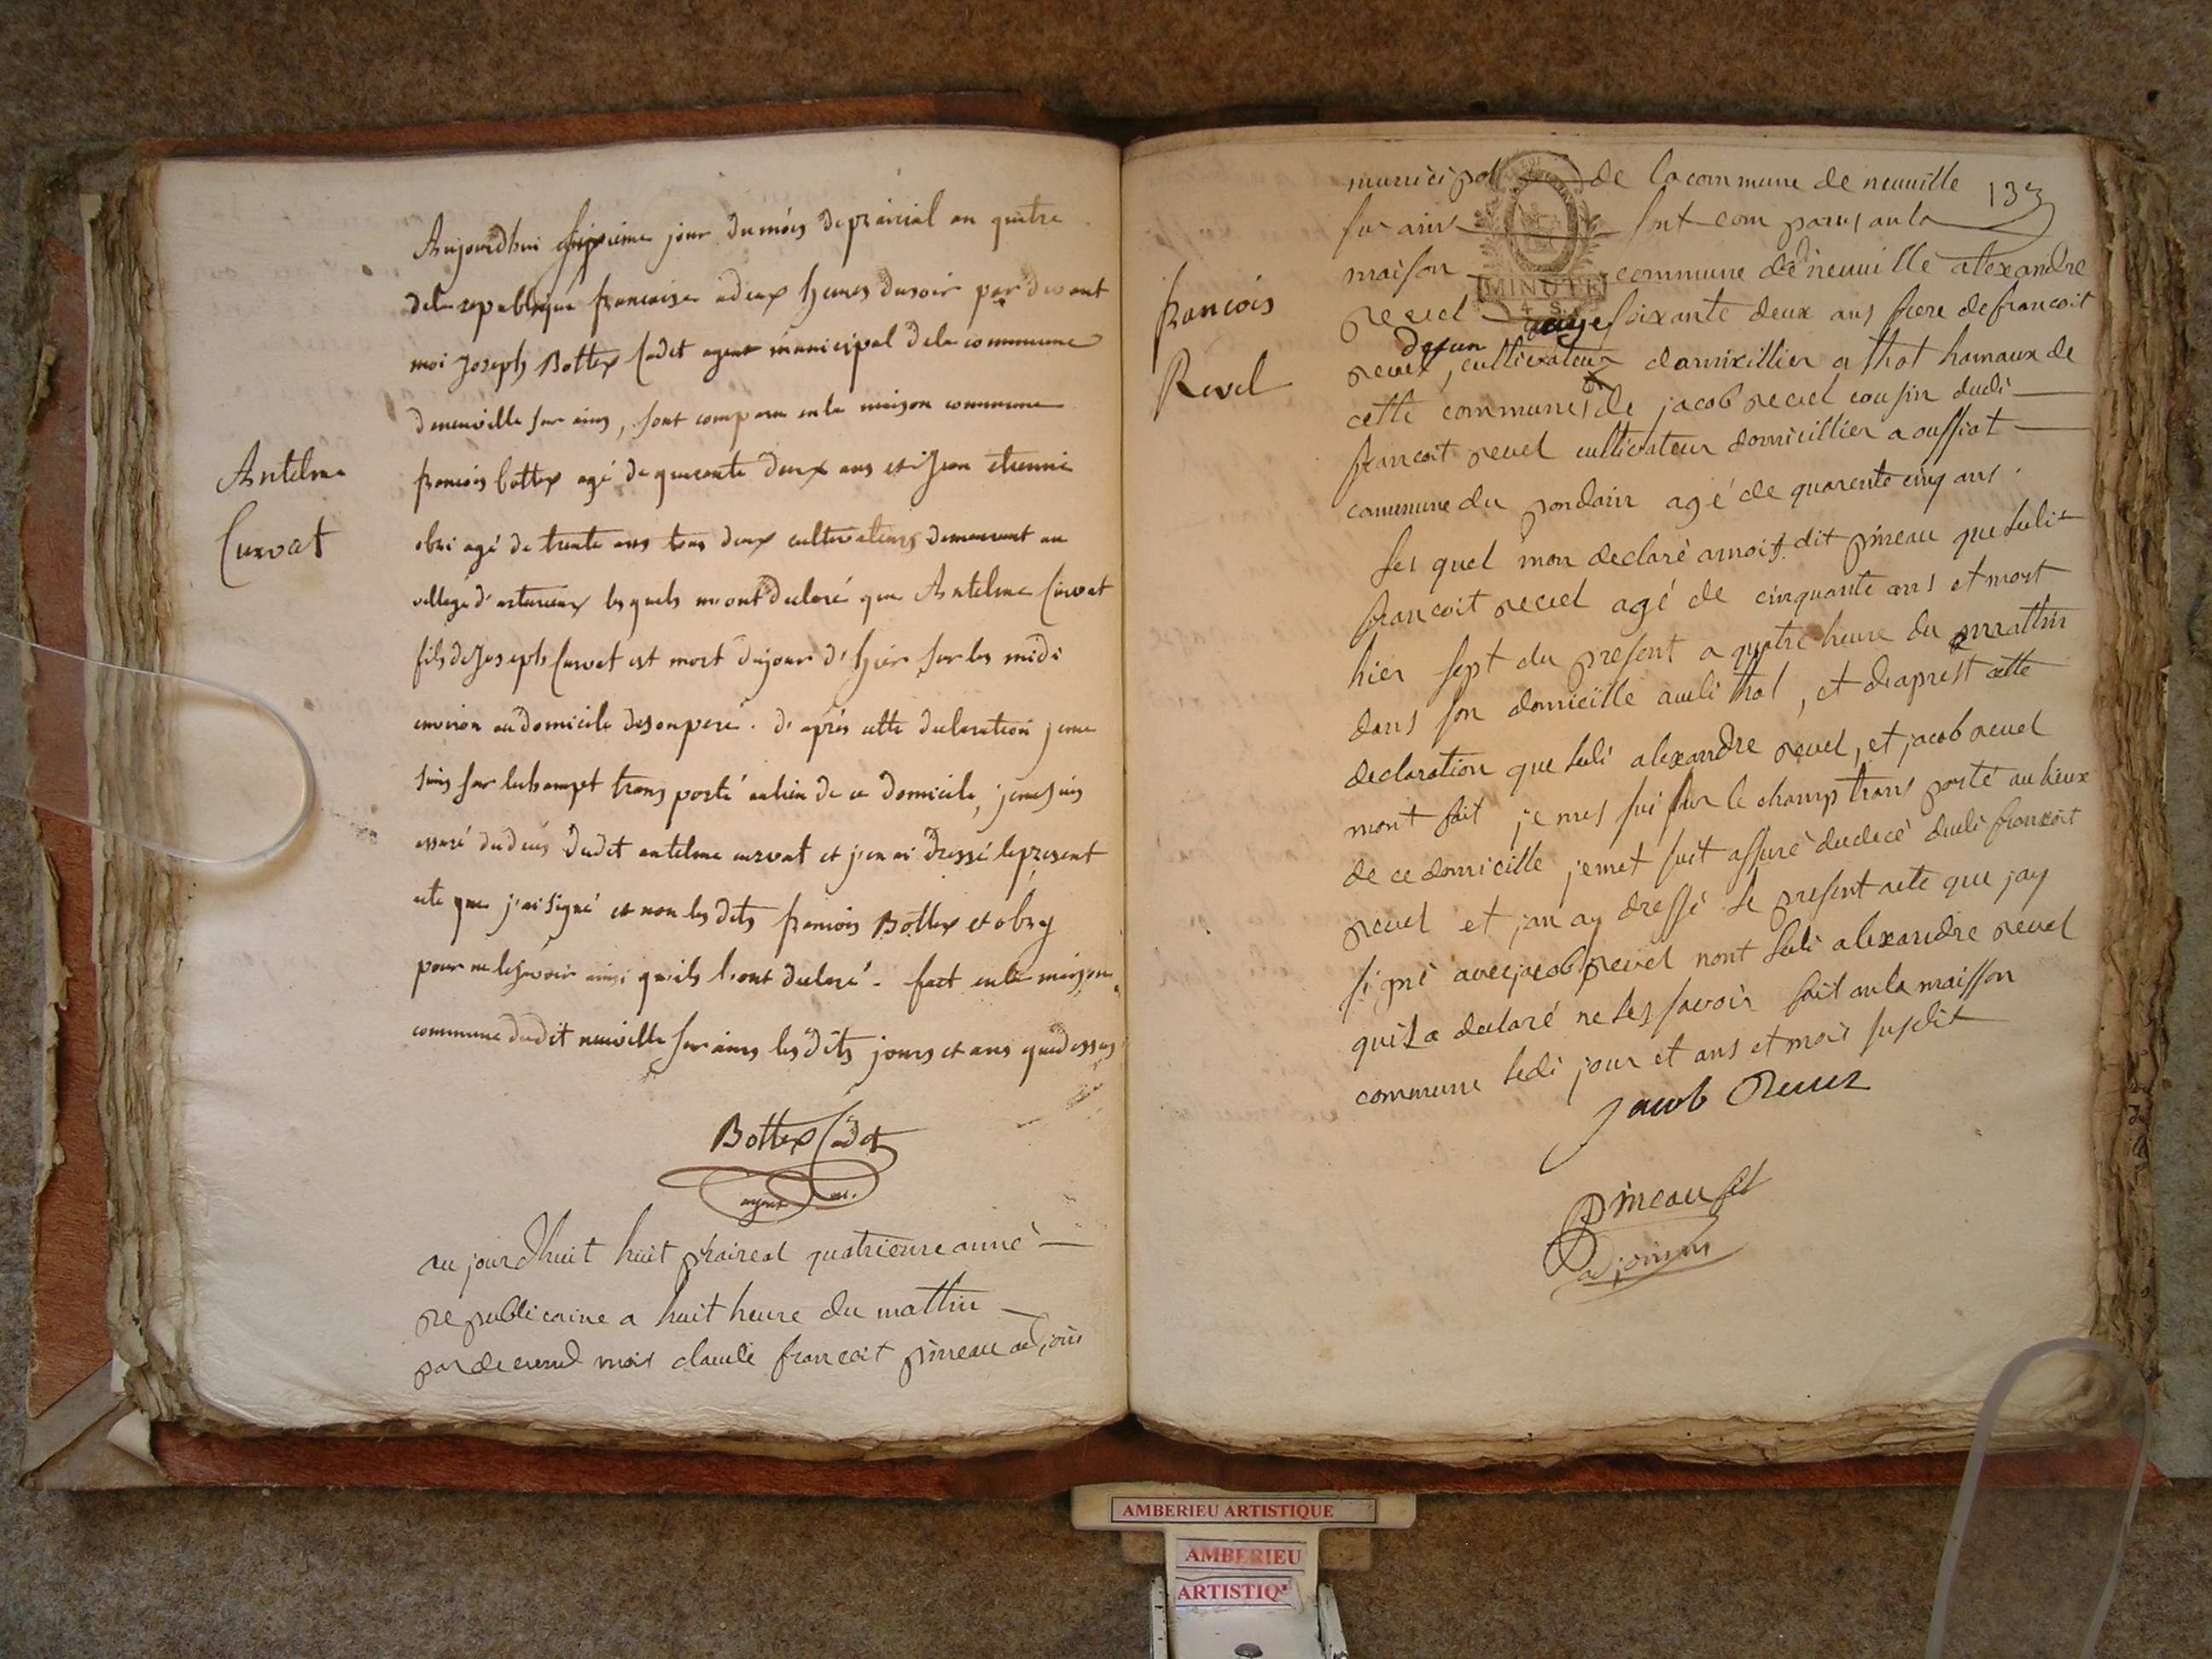 Antelme
Curvat
Aujourdhui septieme jour du mois de prairial an quatre
dela republique francaise a deux heures du soir par devant
moi Joseph Bottex Cadet agent municipal dela commune
de neuville sur ains, sont comparu en la maison commune
francois bottex agé de quarante deux ans et Jean etienne
obri agé de trente ans tous deux cultivateurs demeurant au
village d' lesquels m'ont declaré que Antelme Curvat
fils de Joseph Curvat est mort du jour d'hier sur les midi
environ au domicile de son pere. d'aprés cette declaration je me
suis sur le champt trans porté au lieu de ce domicile, je me suis
assuré du decés dudit antelme curvat et j'en ai dressé le present
acte que j'ai signé et non les dits francois Bottex et obry
pour ne le savoir ainsi qu'ils l'ont declaré. fact en la maison
commune dudit neuville sur ains les dits jours et ans que dessus
Bottex Cadet
agent m.
au jourdhuit huit praireal quatrieme anné
republicaine a huit heure du mattin
par devend moit claude francoit pineau adjoin
133
francois
Revel
municipal de la commune de neuville
sur ains sont com parus an la
maison commune de neuville alexandre
MINUTE
4 S.
revel age soixante deux ans frere de francoit
defun
revel, cultivateur domixillier a thol hamaux de
cette commune, et de jacob revel cousin dudi
francoit revel cultivateur domicillier a oussiat
commune du pondain agé de quarente cinq ans.
les quel mon declaré a moit dit pineau que ledit
francoit revel agé de cinquante ans et mort
hier sept du present a quatre heure du mattin
dans son domicille audi thol, et daprest cette
declaration que ledi alexandre revel, et jacob revel
mont fait je mes sui sur le champ trans porté au lieux
de ce domicille jemet suit assuré du decé dudi francoit
revel et jan ay dressé le present acte que jay
signé avec jacob revel nont ledi alexandre revel
quil a declaré ne les savoir fait an la maisson
commune ledi jour et ans et mois susdit
Jacob Revel
pineau
adjoint
AMBERIEU ARTISTIQUE
AMBERIEU
ARTISTIQ